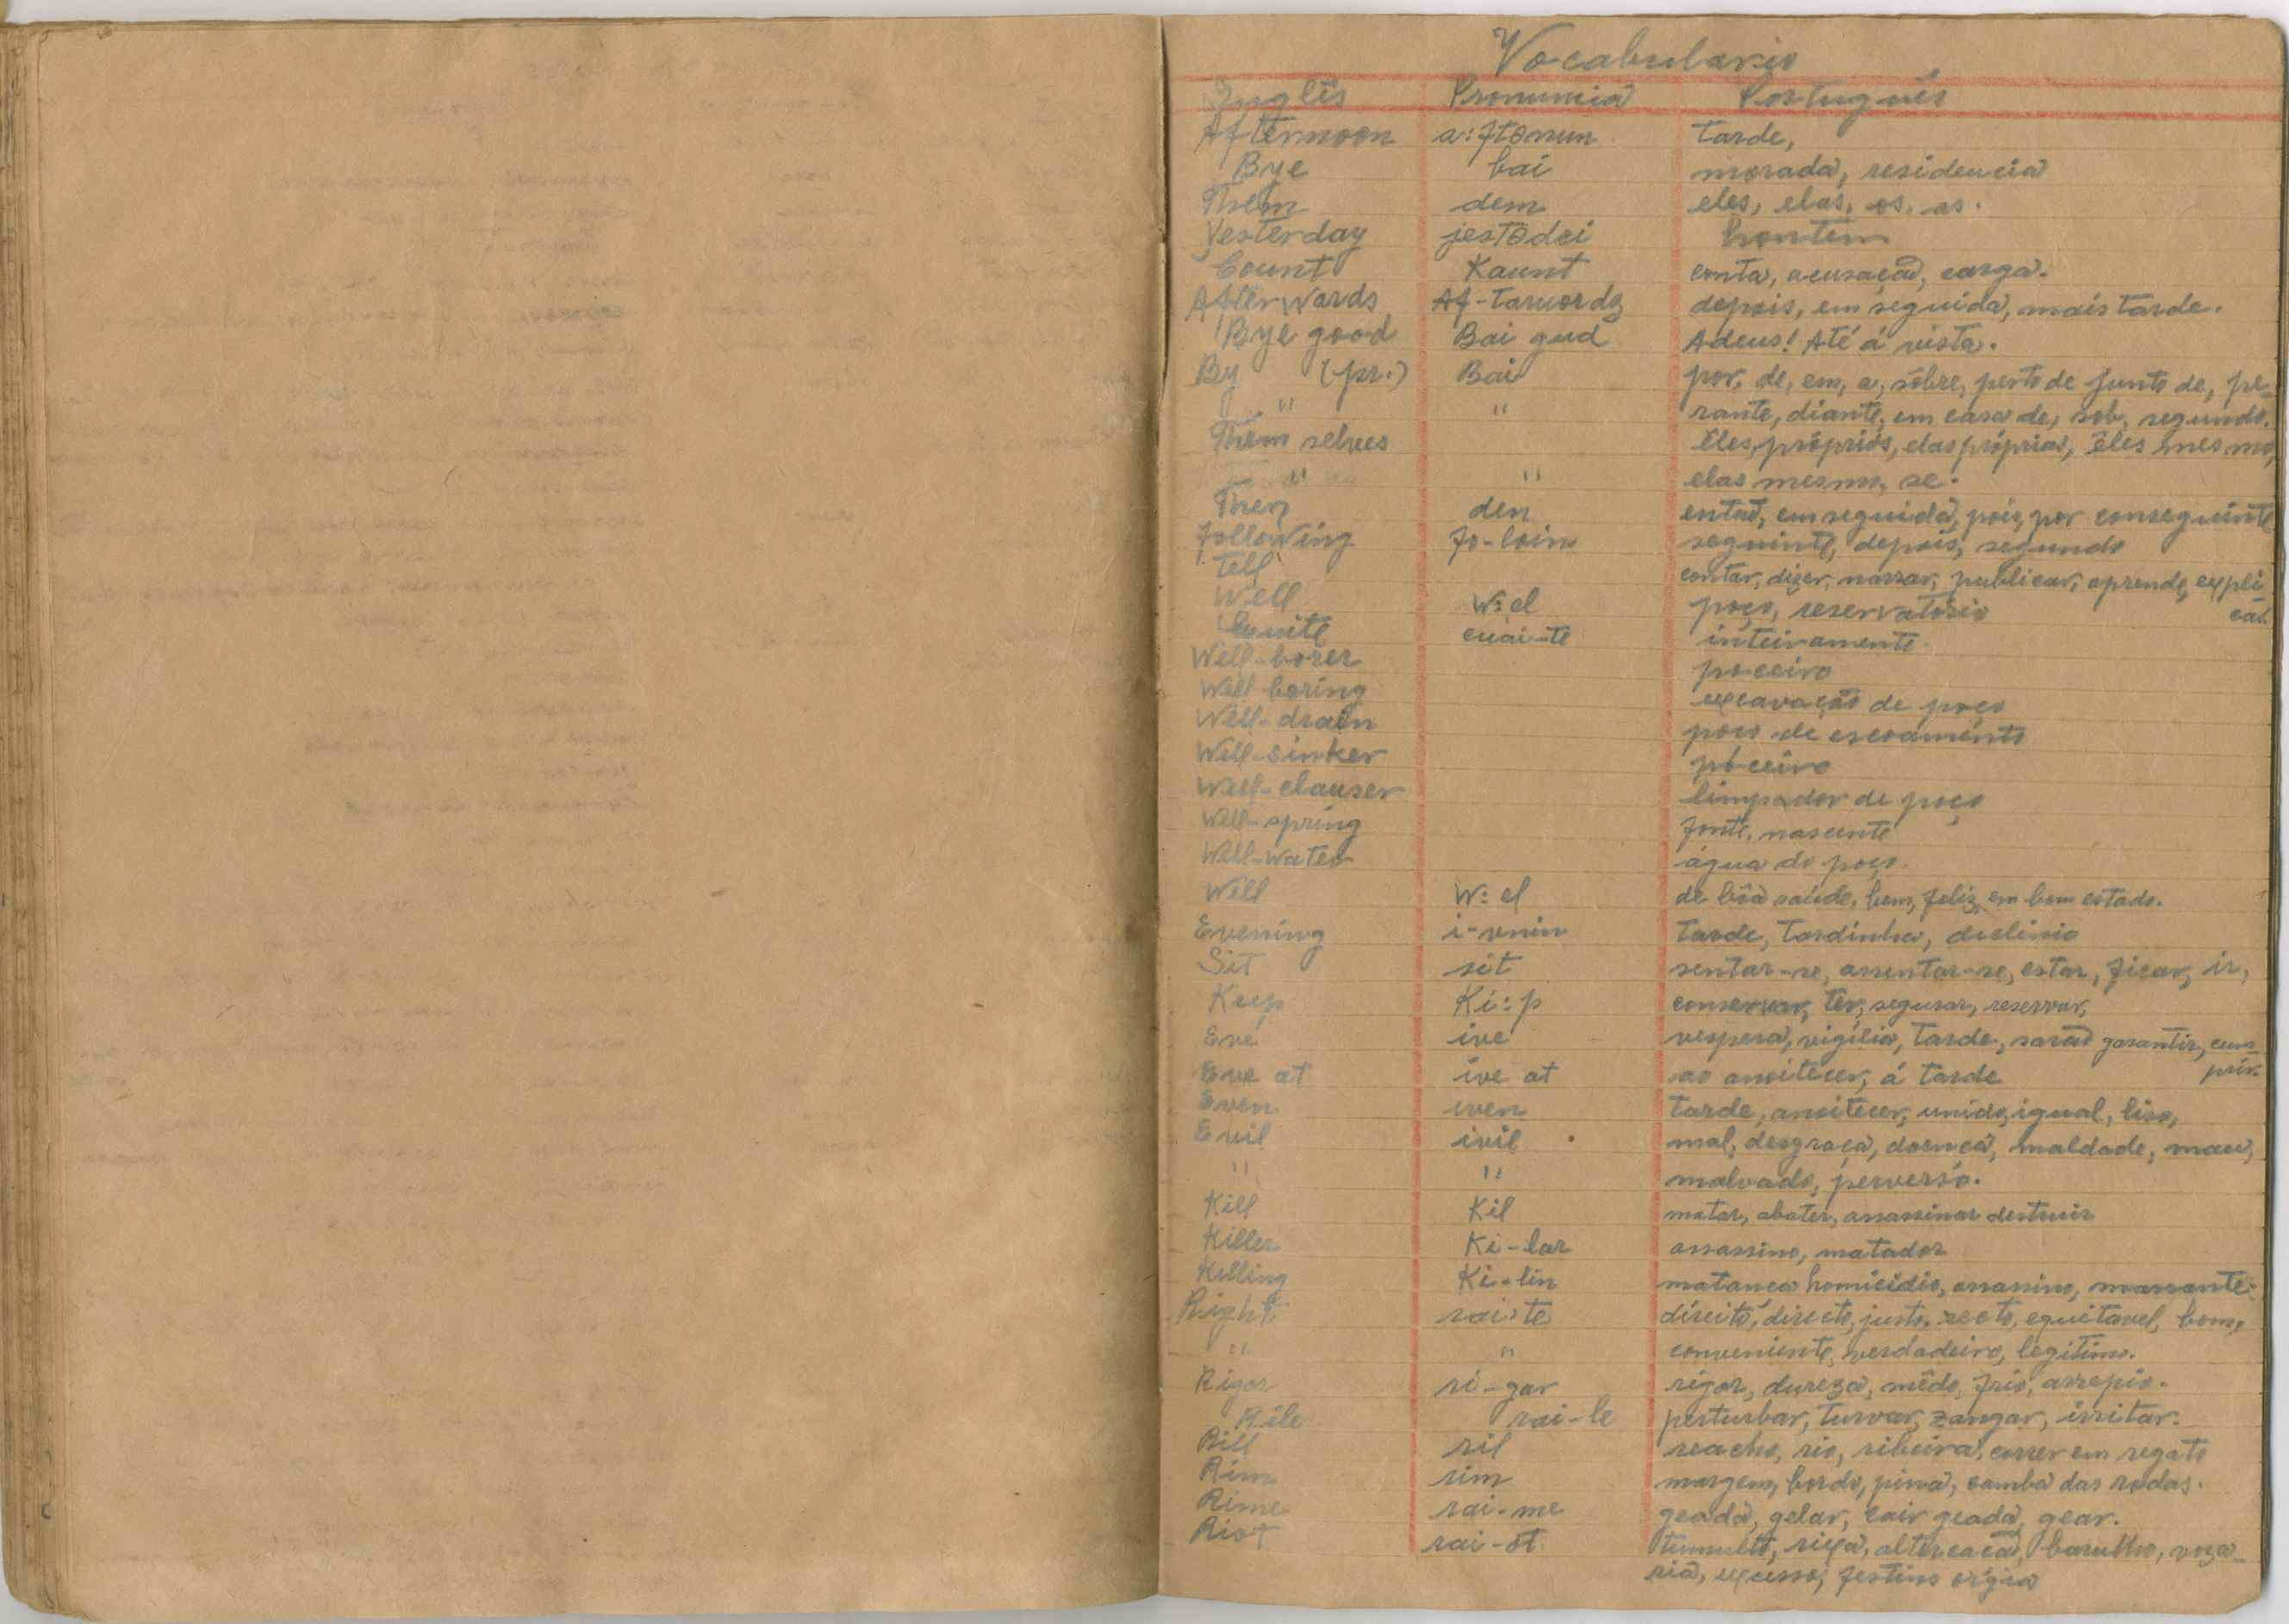 Vocabulario
Inglês Pronuncia Português
Afternoon a:ftanun tarde,
Bye bai morada, residencia
Them dem eles, elas, os, as.
Yesterday jestadei hontem
Count Kaunt conta, acusação, carga.
Afterwards Af-taruords depois, em seguida, mais tarde.
Bye good Bai gud Adeus! Até á vista.
By (pr.) Bai por, de, em, a, sôbre, perto de junto de, pe-
" " rante, diante, em casa de, sob, segundo.
Them selves êles próprios, elas próprias, êles mesmo,
" " elas mesmo, se.
Then den então, em seguida, pois, por conseguinte
Following fo-loin seguinte, depois, segundo
Tell contar, dizer, narrar, publicar, aprende, expli
Well W:el poço, reservatório car.
Quite cuai-te inteiramente.
Well-borer poceiro
Well boring excavação de poço
Well-drain poço de escoamento
Well-sinker poceiro
Well-clauser limpador de poço
Well-spring fonte, nascente
Well-water água do poço.
Well W:el de bôa saúde, bem, feliz, em bom estado.
Evening i-vnin tarde, tardinha, declinio
Sit sit sentar-se, assentar-se, estar, ficar, ir,
Keep Ki:p conservar, ter, segurar, reservar,
Eve ive vespera, vigília, tarde, sarao garantir, cum-
Eve at ive at ao anoitecer, á tarde prir.
Even iven tarde, anoitecer, unido, igual, liso,
Evil ivil mal, desgraça, doença, maldade, mau,
" " malvado, perverso.
Kill Kil matar, abater, assassinar destruir
Killer Ki-lar assassino, matador
Killing Ki-lin matança homicidio, assassino, massante.
Right rai-te direito, directo, justo, recto, equitavel, bom,
" " conveniente, verdadeiro, legitimo.
Rigor ri-gar rigor, dureza, mêdo, frio, arrepio.
Rile rai-le perturbar, turvar, zangar, irritar.
Rill ril reacho, rio, ribeira, correr em regato
Rim rim margem, bordo, pina, camba das rodas.
Rime rai-me geada, gelar, cair geada, gear.
Riot rai-ot tumulto, rixa, altercação, barulho, voza-
ria, excesso, festins orgia